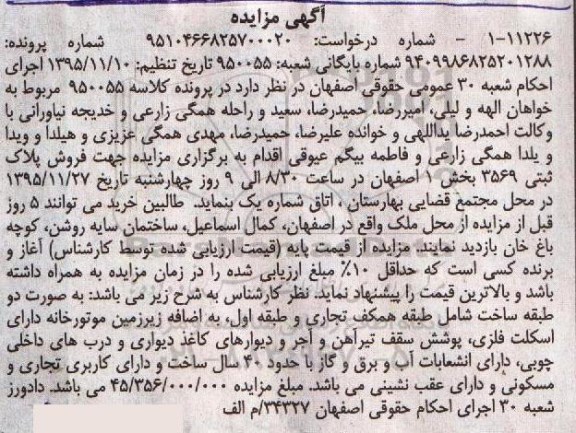 آگهی مزایده
۱-۱۱۲۲۶ - شماره درخواست: ۹۵۱۰۴۶۶۸۲۵۷۰۰۰۲۰ شماره پرونده:
۹۴۰۹۹۸۶۸۲۵۲۰۱۲۸۸ شماره بایگانی شعبه: ۹۵۰۰۵۵ تاریخ تنظیم: ۱۳۹۵/۱۱/۱۰ اجرای
احکام شعبه ۳۰ عمومی حقوقی اصفهان در نظر دارد در پرونده کلاسه ۹۵۰۰۵۵ مربوط به
خواهان الهه و لیلی، امیررضا، حمیدرضا، سعید و راحله همگی زارعی و خدیجه نیاورانی با
وکالت احمدرضا یداللهی و خوانده علیرضا، حمیدرضا، مهدی همگی عزیزی و هیلدا و ویدا
و یلدا همگی زارعی و فاطمه بیگم عیوقی اقدام به برگزاری مزایده جهت فروش پلاک
ثبتی ۳۵۶۹ بخش ۱ اصفهان در ساعت ۸/۳۰ الی ۹ روز چهارشنبه تاریخ ۱۳۹۵/۱۱/۲۷
در محل مجتمع قضایی بهارستان ، اتاق شماره یک بنماید. طالبین خرید می توانند ۵ روز
قبل از مزایده از محل ملک واقع در اصفهان، کمال اسماعیل، ساختمان سایه روشن، کوچه
باغ خان بازدید نمایند. مزایده از قیمت پایه (قیمت ارزیابی شده توسط کارشناس) آغاز و
برنده کسی است که حداقل ۱۰٪ مبلغ ارزیابی شده را در زمان مزایده به همراه داشته
باشد و بالاترین قیمت را پیشنهاد نماید. نظر کارشناس به شرح زیر می باشد: به صورت دو
طبقه ساخت شامل طبقه همکف تجاری و طبقه اول، به اضافه زیرزمین موتورخانه دارای
اسکلت فلزی، پوشش سقف تیرآهن و آجر و دیوارهای کاغذ دیواری و درب های داخلی
چوبی، دارای انشعابات آب و برق و گاز با حدود ۴۰ سال ساخت و دارای کاربری تجاری و
مسکونی و دارای عقب نشینی می باشد. مبلغ مزایده ۴۵/۳۵۶/۰۰۰/۰۰۰ می باشد. دادورز
شعبه ۳۰ اجرای احکام حقوقی اصفهان ۳۴۳۲۷/م الف